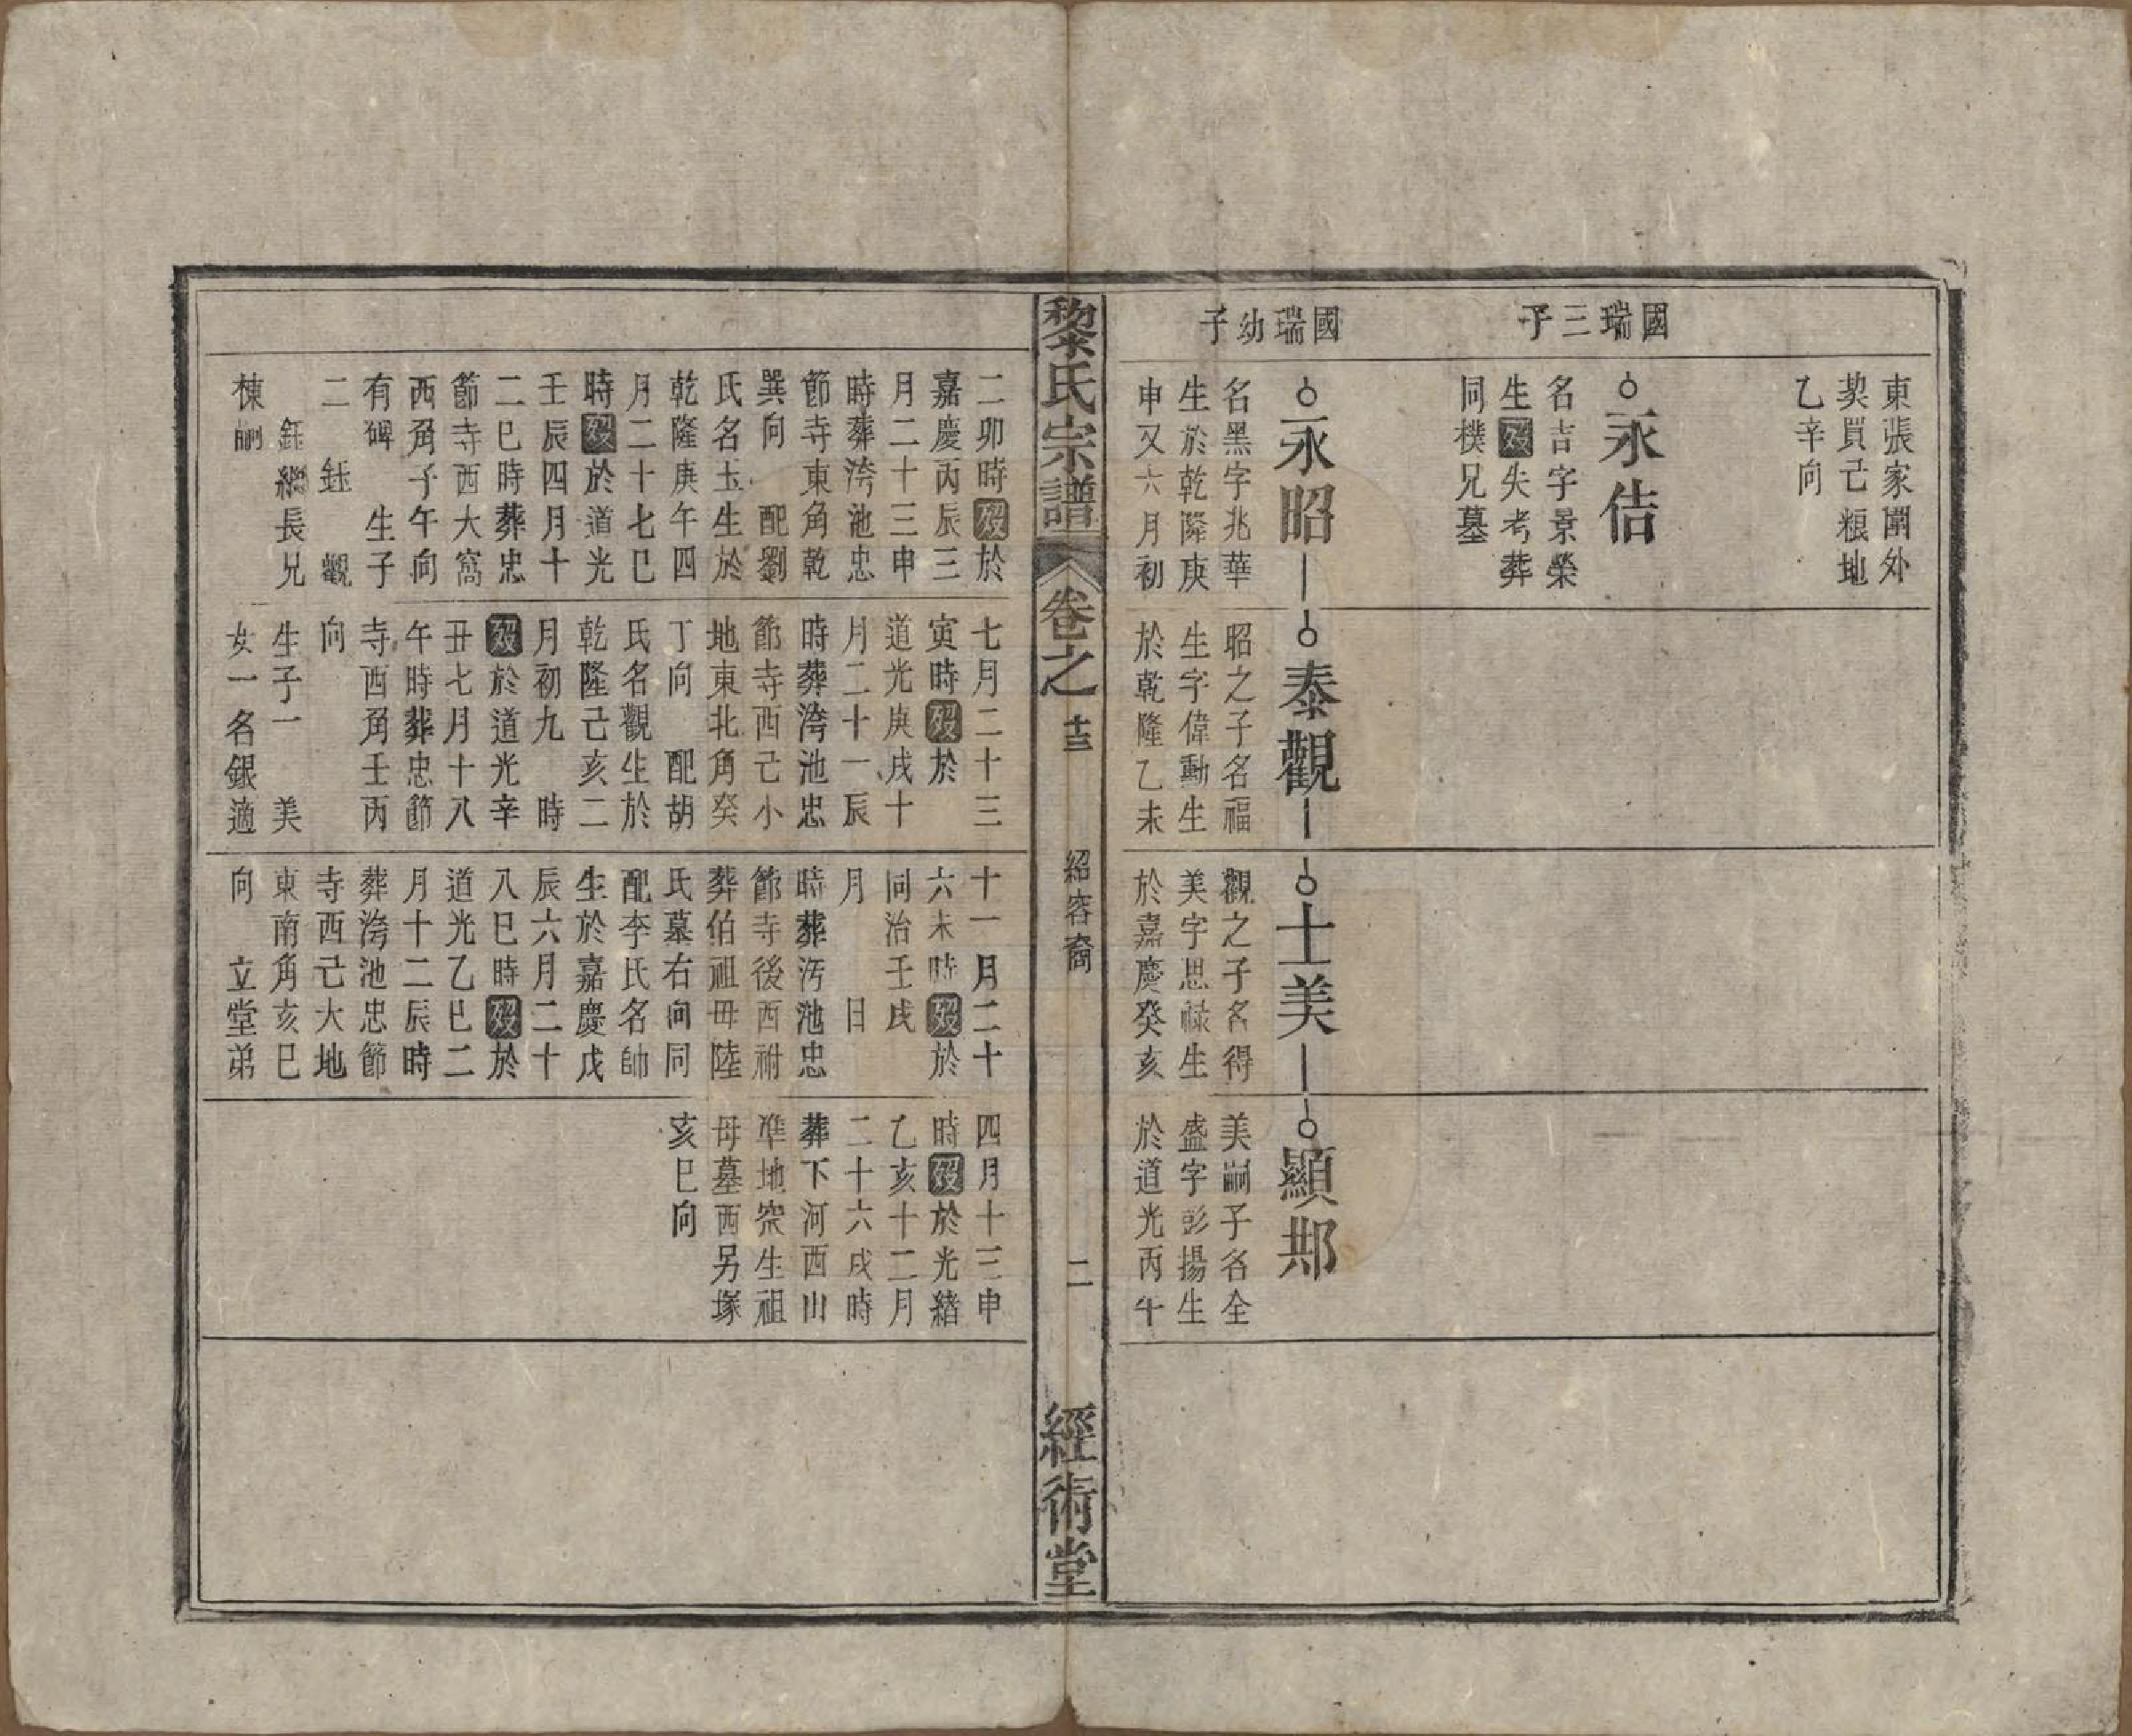 國瑞三子
國瑞幼子
東張家圍外
契買己糧地
乙辛向
永佶
名吉字景榮
生歿失考葬
同樸兄墓
永昭
名黑字兆華
生於乾隆庚
申又六月初
泰觀
昭之子名福
生字偉勳生
於乾隆乙未
士美
觀之子名得
美字思祿生
於嘉慶癸亥
顯邦
美嗣子名全
盛字彭揚生
於道光丙午
黎氏宗譜
卷之
十三
紹容裔
二
經術堂
二卯時歿於
嘉慶丙辰三
月二十三申
時葬洿池忠
節寺東角乾
巽向 配劉
氏名玉生於
乾隆庚午四
月二十七巳
時歿於道光
壬辰四月十
二巳時葬忠
節寺西大窩
西角子午向
有碑 生子
二 鈺 觀
鈺繼長兄
棟嗣
七月二十三
寅時歿於
道光庚戌十
月二十一辰
時葬洿池忠
節寺西己小
地東北角癸
丁向 配胡
氏名觀生於
乾隆己亥二
月初九 時
歿於道光辛
丑七月十八
午時葬忠節
寺西角壬丙
向
生子一 美
女一名銀適
十一月二十
六未時歿於
同治壬戌
月 日
時葬洿池忠
節寺後西祔
葬伯祖毋陸
氏墓右向同
配李氏名帥
生於嘉慶戊
辰六月二十
八巳時歿於
道光乙巳二
月十二辰時
葬洿池忠節
寺西己大地
東南角亥巳
向 立堂弟
四月十三申
時歿於光緒
乙亥十二月
二十六戌時
葬下河西山
準地穾生祖
母墓西另塚
亥巳向